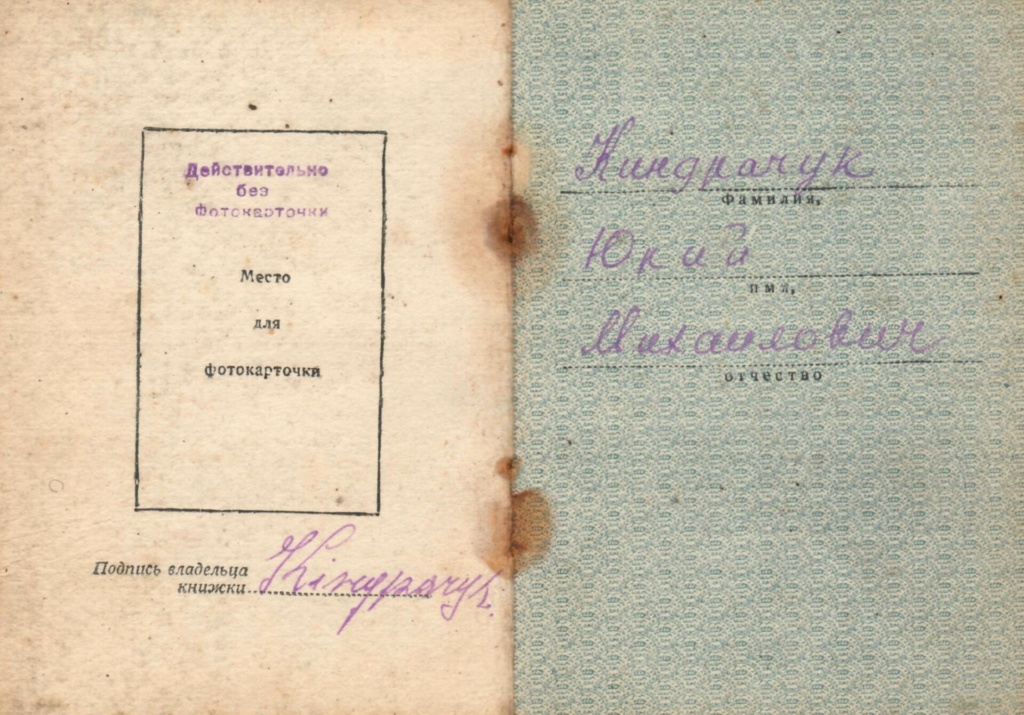 Действительно
без
Фотокарточки
Место
для
фотокарточки
Подпись владельца
книжки Кіндрачук.
Киндрачук
фамилия,
Юрий
имя,
Михаилович
отчество